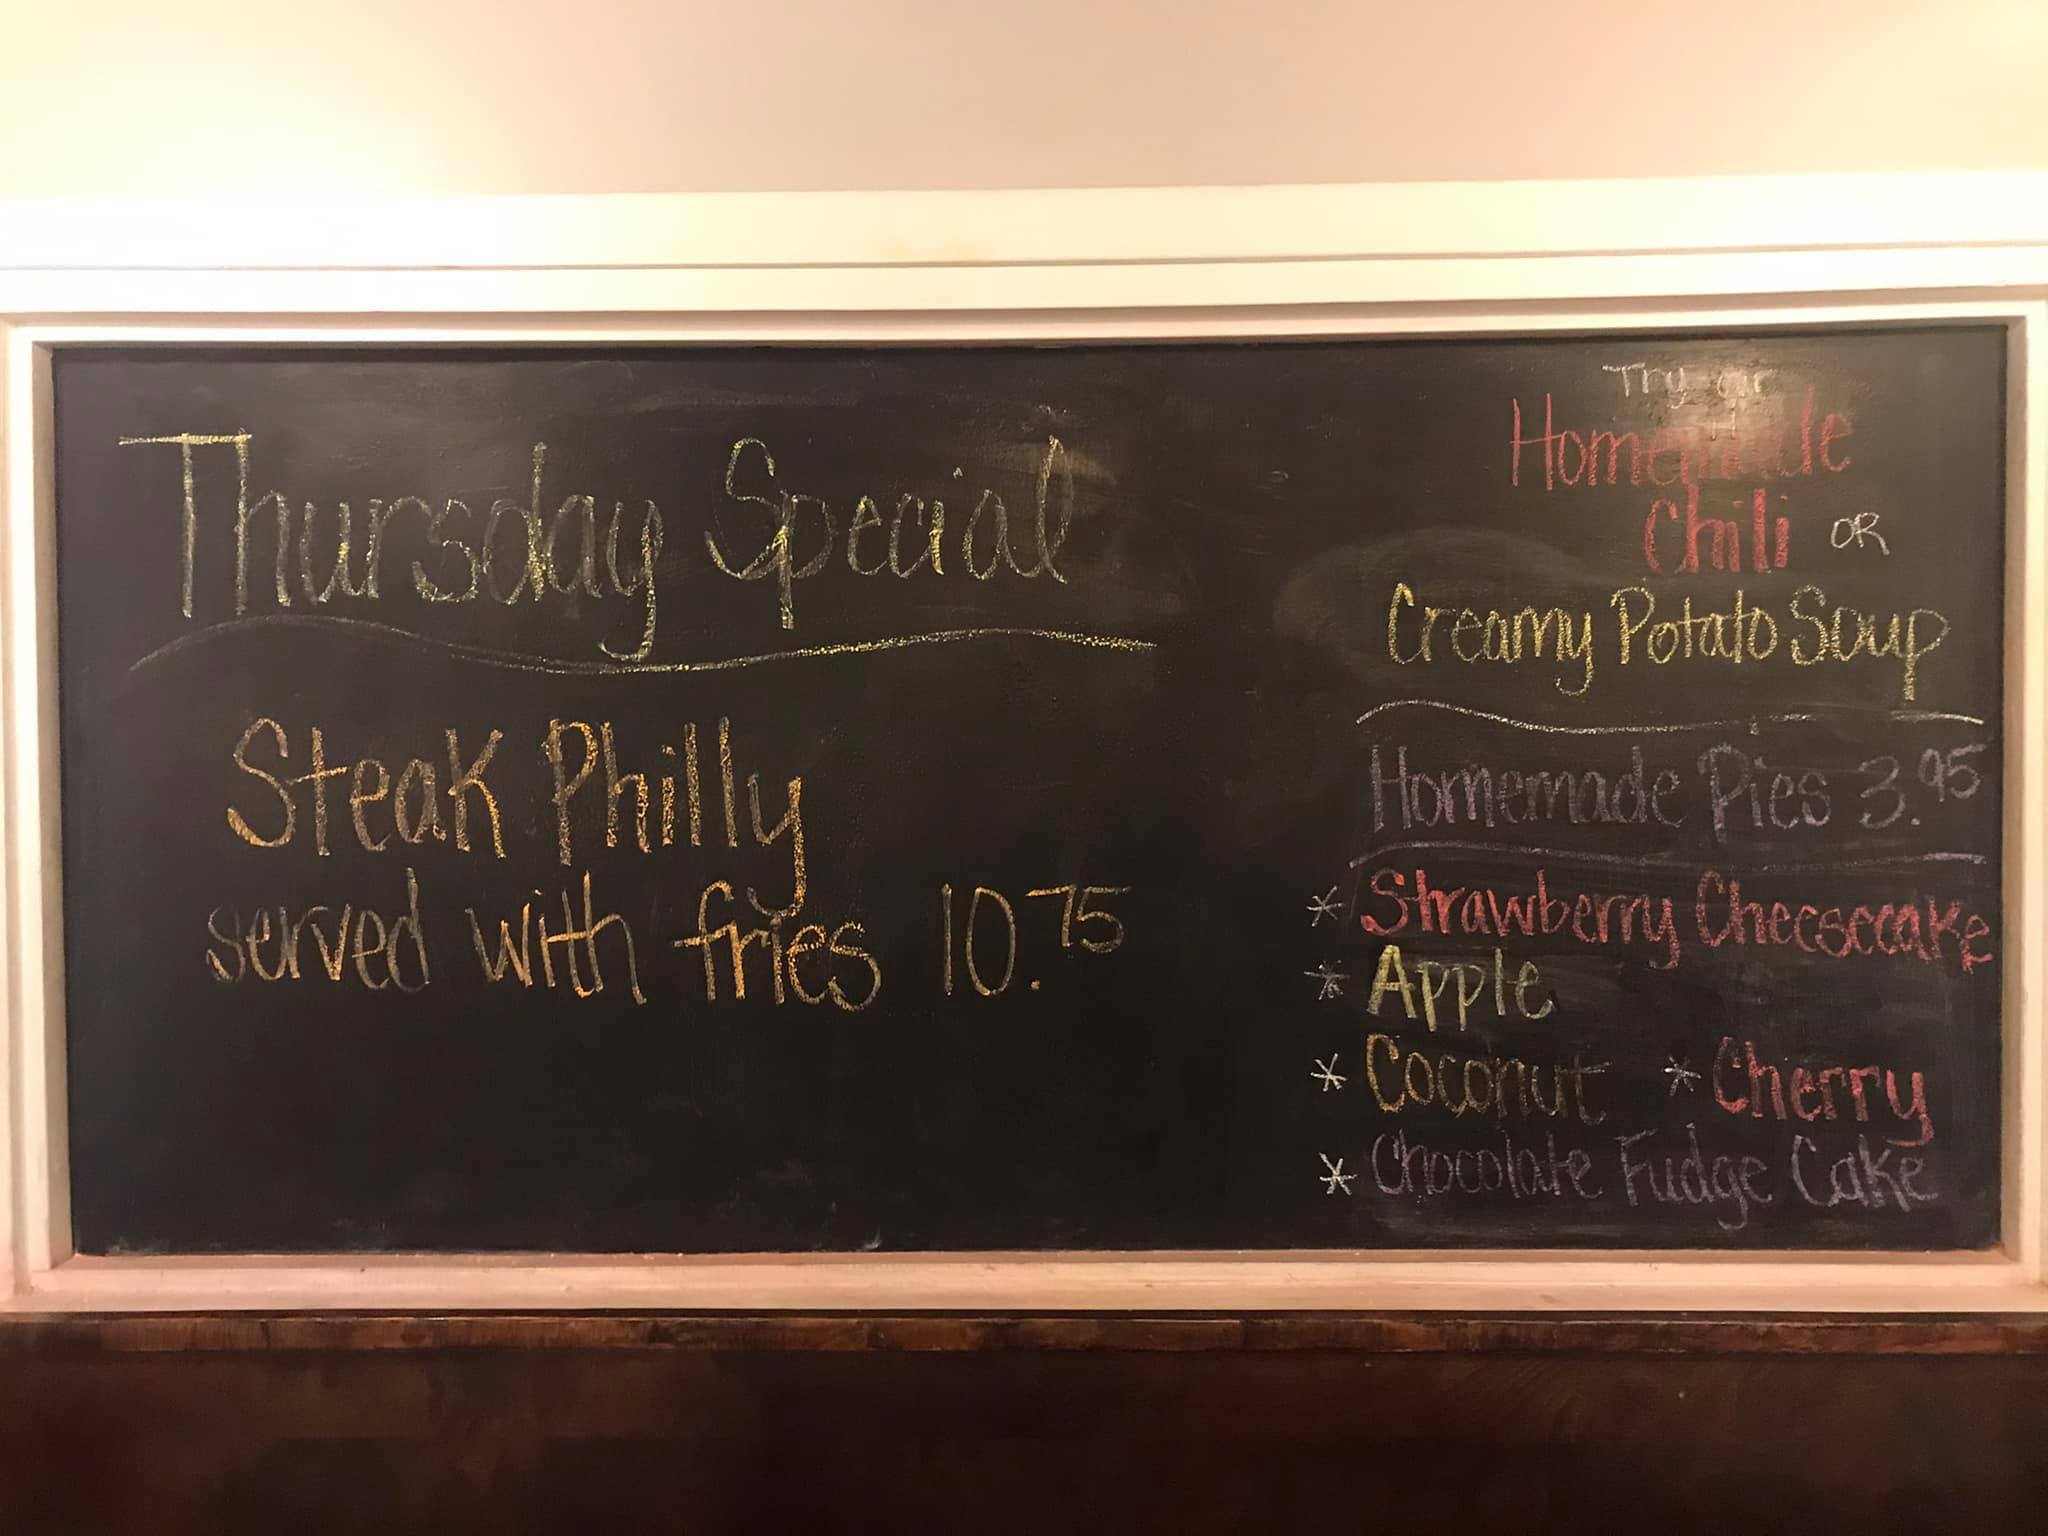 Thursday Special
Steak Philly
served with fries 10.75
Try our
Homemade
Chili OR
Creamy Potato Soup
Homemade Pies 3.95
* Strawberry Cheesecake
* Apple
* Coconut * Cherry
* Chocolate Fudge Cake